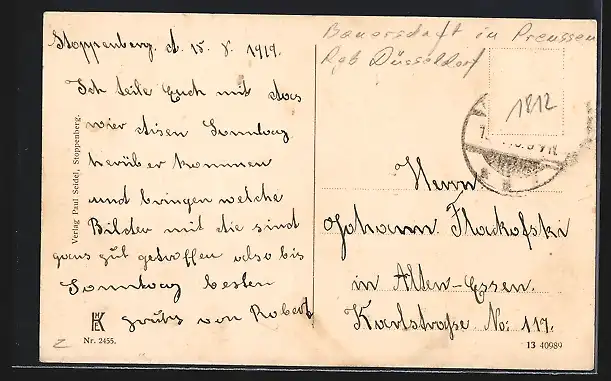 Stoppenberg. d. 15. 8. 1919.
Ich teile Euch mit das
wier disen Sonntag
herüber kommen
und bringen welche
Bilder mit die sind
gans gut getroffen also bis
Sonntag besten
grüßs von Robert
HK
Nr. 2455.
Verlag Paul Seidel, Stoppenberg.
Bauersdaft in Preussen
Rgb Düsseldorf
1812
Herrn
Johann Flackofski
in Alten-Essen.
Karlstraße No: 117.
13 40989